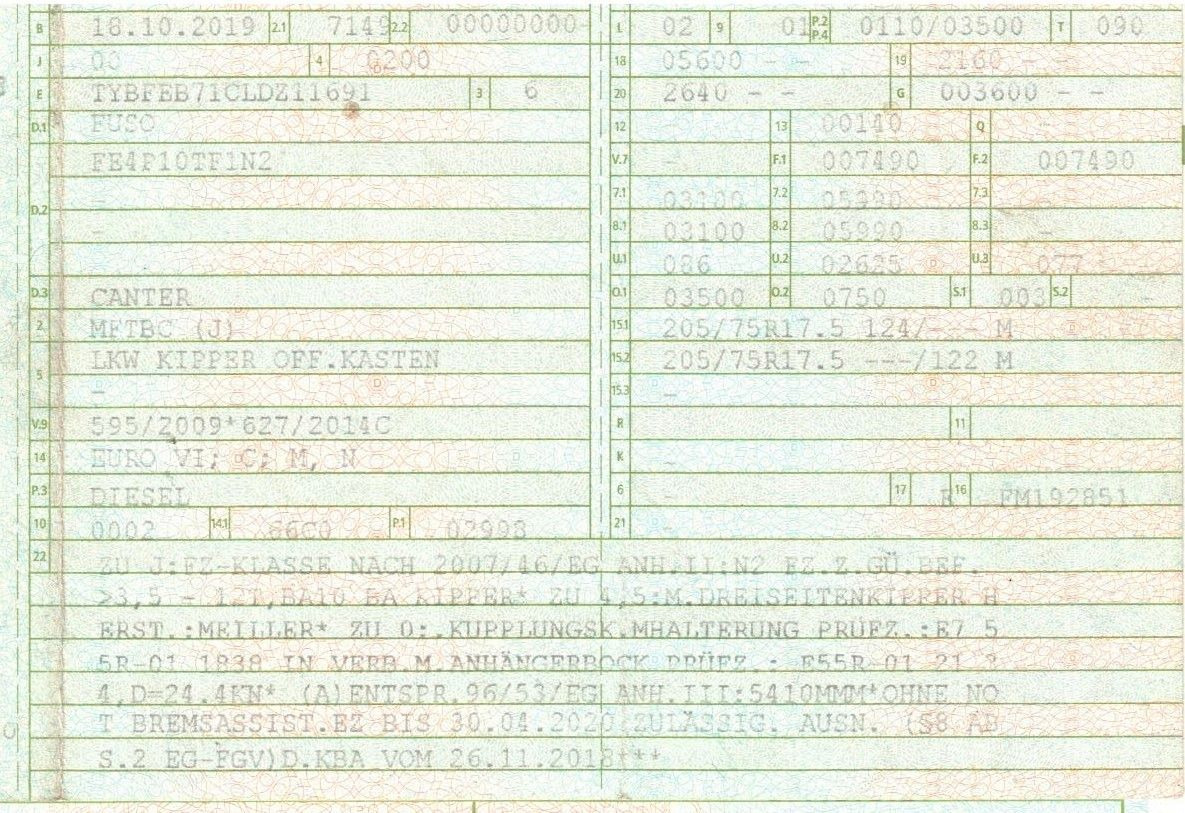 B 18.10.2019 2.1 7149 2.2 00000000- L 02 9 01 P.2 P.4 0110/03500 T 090
J 00 4 0200 18 05600 - - 19 2160 -
E TYBFEB71CLDZ11691 3 6 20 2640 - - G 003600 - -
D.1 FUSO 12 - 13 00140 Q -
FE4P10TF1N2 V.7 - F.1 007490 F.2 007490
D.2 - 7.1 03100 7.2 05990 7.3 -
- 8.1 03100 8.2 05990 8.3 -
U.1 086 U.2 02625 U.3 077
D.3 CANTER O.1 03500 O.2 0750 S.1 003 S.2 -
2 MFTBC (J) 15.1 205/75R17.5 124/--- M
5 LKW KIPPER OFF.KASTEN 15.2 205/75R17.5 ---/122 M
- 15.3 -
V.9 595/2009*627/2014C R 11
14 EURO VI; C; M, N K -
P.3 DIESEL 6 - 17 R 16 FM192851
10 0002 14.1 66C0 P.1 02998 21 -
22 ZU J:FZ-KLASSE NACH 2007/46/EG ANH.II:N2 FZ.Z.GÜ.BEF.
>3,5 - 12T,BA10 BA KIPPER* ZU 4,5:M.DREISEITENKIPPER H
ERST.:MEILLER* ZU O:.KUPPLUNGSK.MHALTERUNG PRÜFZ.:E7 5
5R-01 1838 IN VERB.M.ANHÄNGERBOCK PRÜFZ.: E55R-01 21 3
4,D=24.4KN* (A)ENTSPR.96/53/EG ANH.III:5410MMM*OHNE NO
T BREMSASSIST.EZ BIS 30.04.2020 ZULÄSSIG. AUSN. (§8 AB
S.2 EG-FGV)D.KBA VOM 26.11.2018***